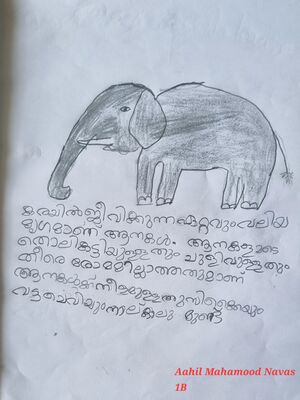 കരയിൽ ജീവിക്കുന്ന ഏറ്റവും വലിയ
മൃഗമാണ് ആനകൾ. ആനകളുടെ
തൊലി കട്ടിയുള്ളതും ചുളിവുള്ളതും
തീരെ രോമമില്ലാത്തതുമാണ്
ആനകൾക്ക് നീളമുള്ള തുമ്പിക്കൈയും
വട്ട ചെവിയും നാല് കാലും ഉണ്ട്
Aahil Mahamood Navas
1B